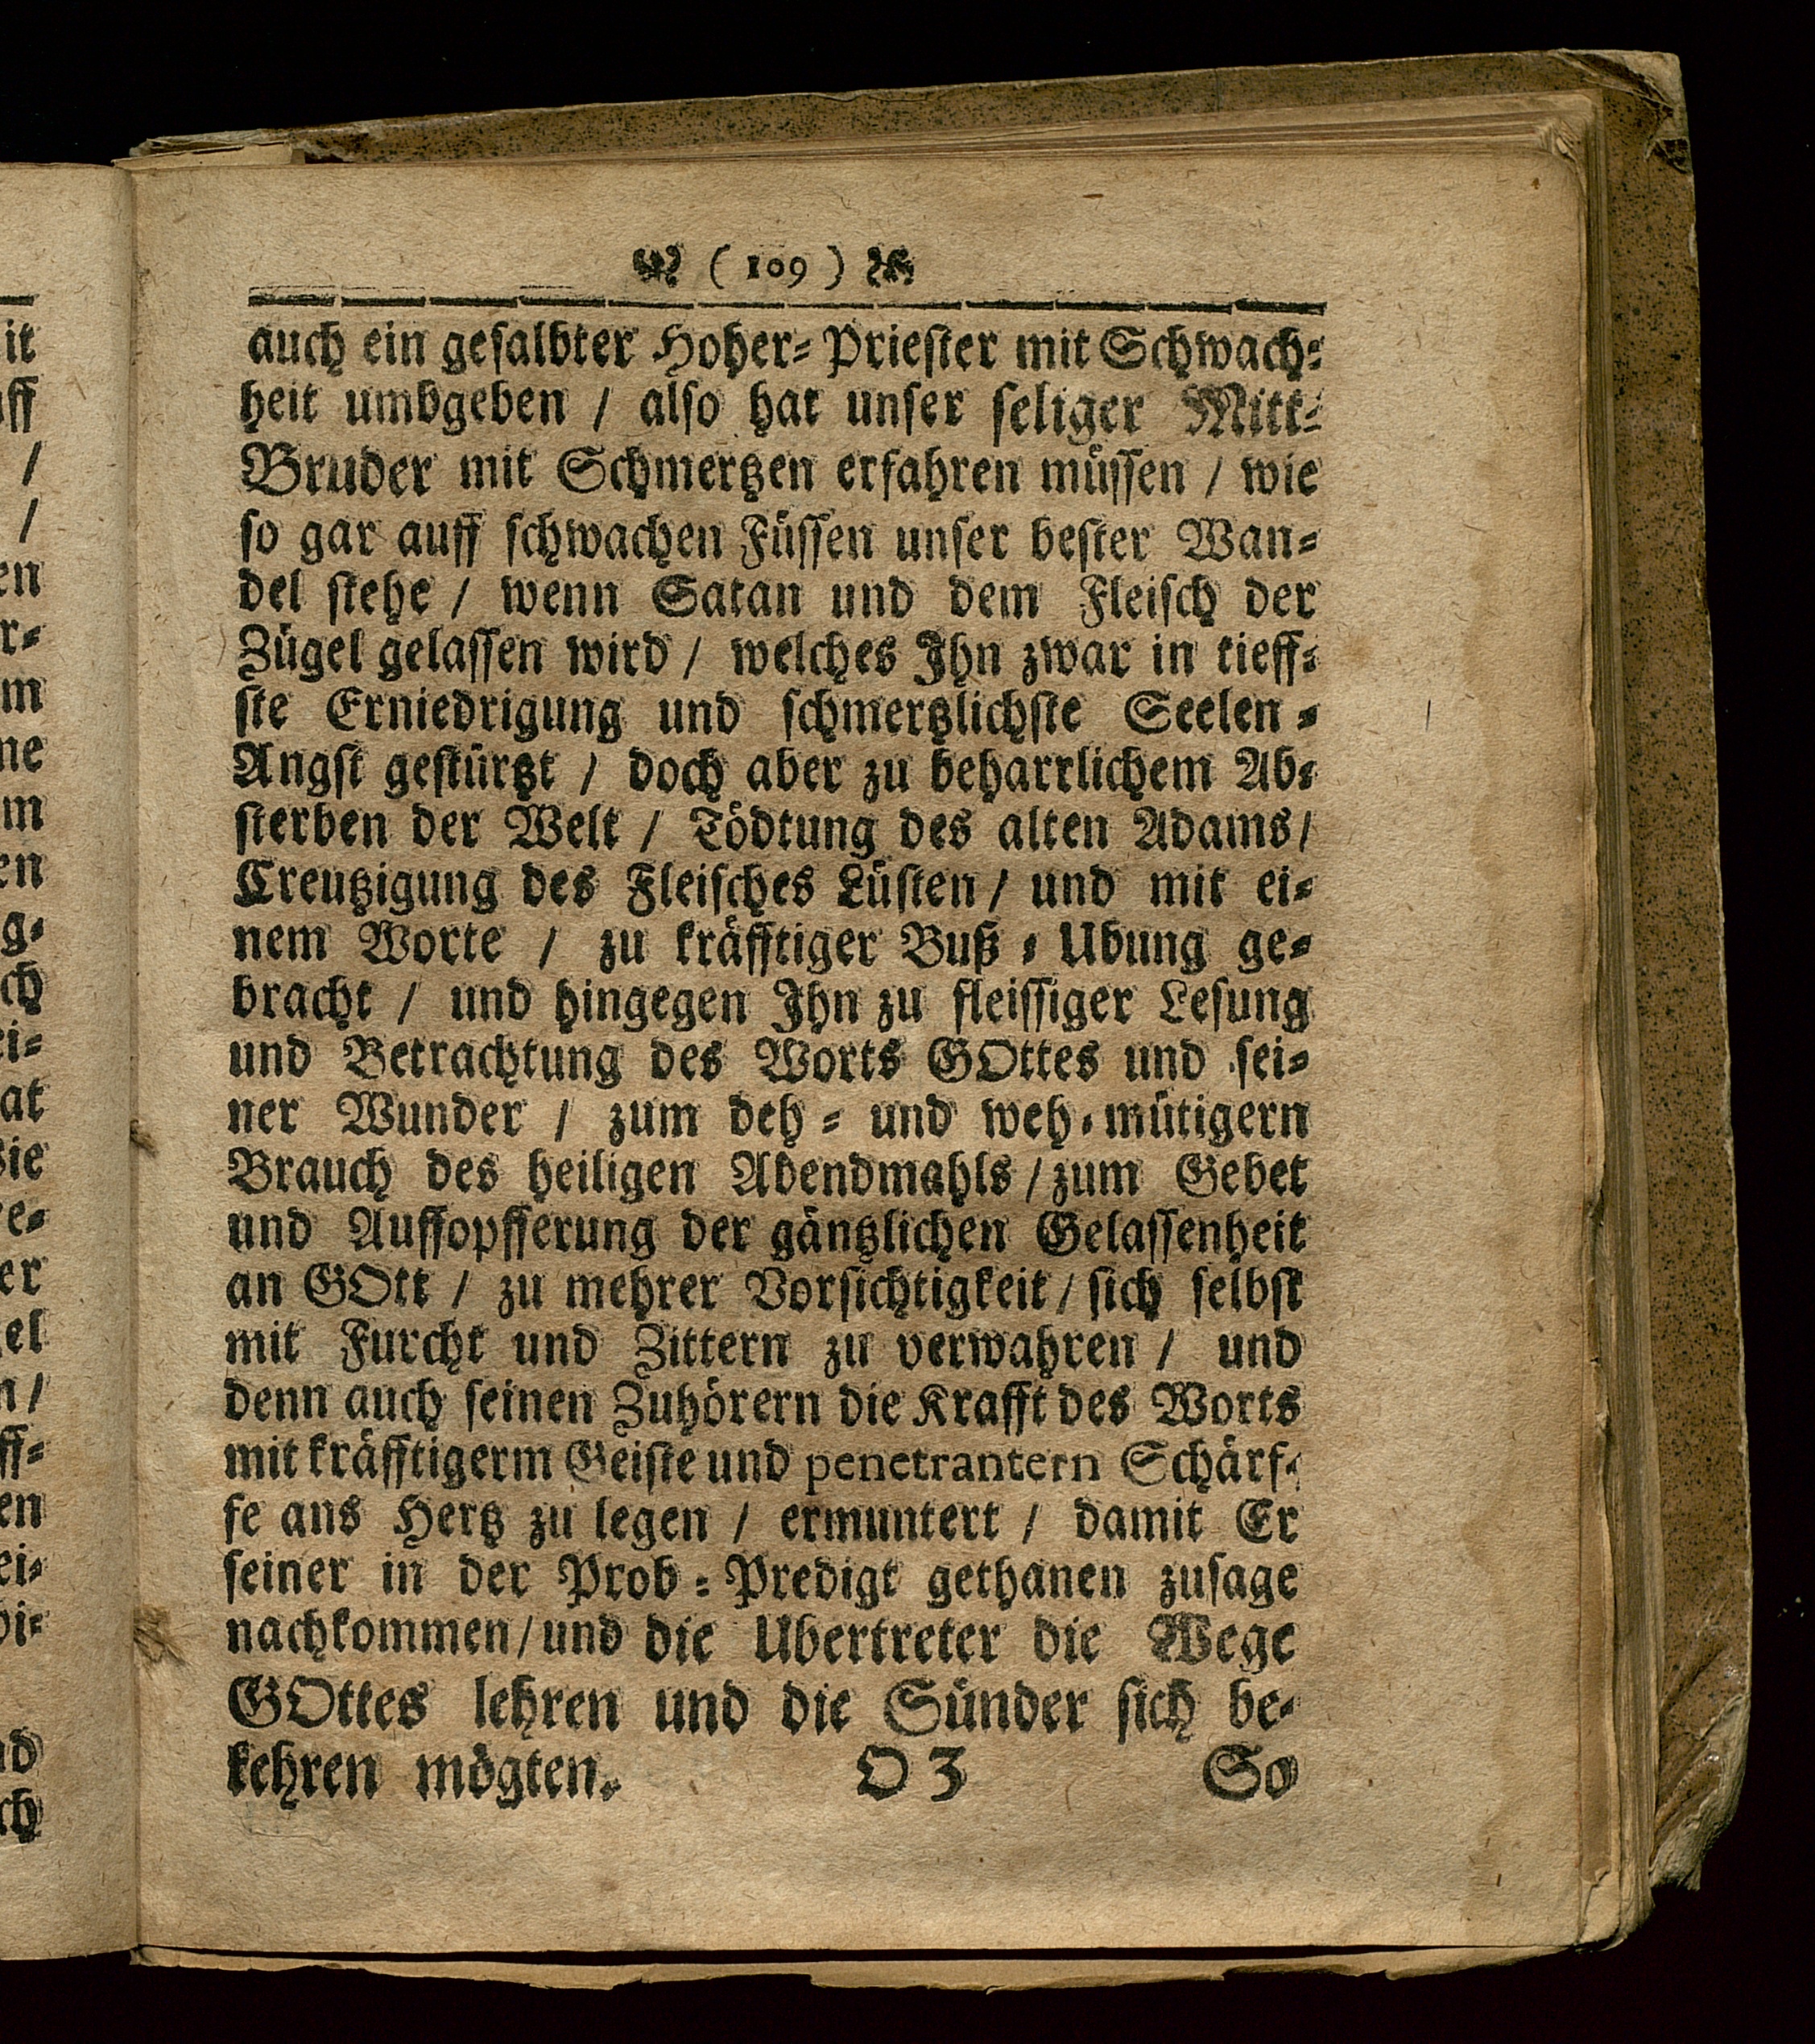 ( 109 )
auch ein gesalbter Hoher-Priester mit Schwach-
heit umbgeben / also hat unser seliger Mitt-
Bruder mit Schmertzen erfahren müssen / wie
so gar auff schwachen Füssen unser bester Wan-
del stehe / wenn Satan und dem Fleisch der
Zügel gelassen wird / welches Ihn zwar in tieff-
ste Erniedrigung und schmertzlichste Seelen-
Angst gestürtzt / doch aber zu beharrlichem Ab-
sterben der Welt / Tödtung des alten Adams /
Creutzigung des Fleisches Lüsten / und mit ei-
nem Worte / zu kräfftiger Buß-Ubung ge-
bracht / und hingegen Ihn zu fleissiger Lesung
und Betrachtung des Worts GOttes und sei-
ner Wunder / zum deh- und weh-mütigern
Brauch des heiligen Abendmahls / zum Gebet
und Auffopfferung der gäntzlichen Gelassenheit
an GOtt / zu mehrer Vorsichtigkeit / sich selbst
mit Furcht und Zittern zu verwahren / und
denn auch seinen Zuhörern die Krafft des Worts
mit kräfftigerm Geiste und penetrantern Schärf-
fe ans Hertz zu legen / ermuntert / damit Er
seiner in der Prob-Predigt gethanen zusage
nachkommen / und die Ubertreter die Wege
GOttes lehren und die Sünder sich be-
kehren mögten. O 3 So